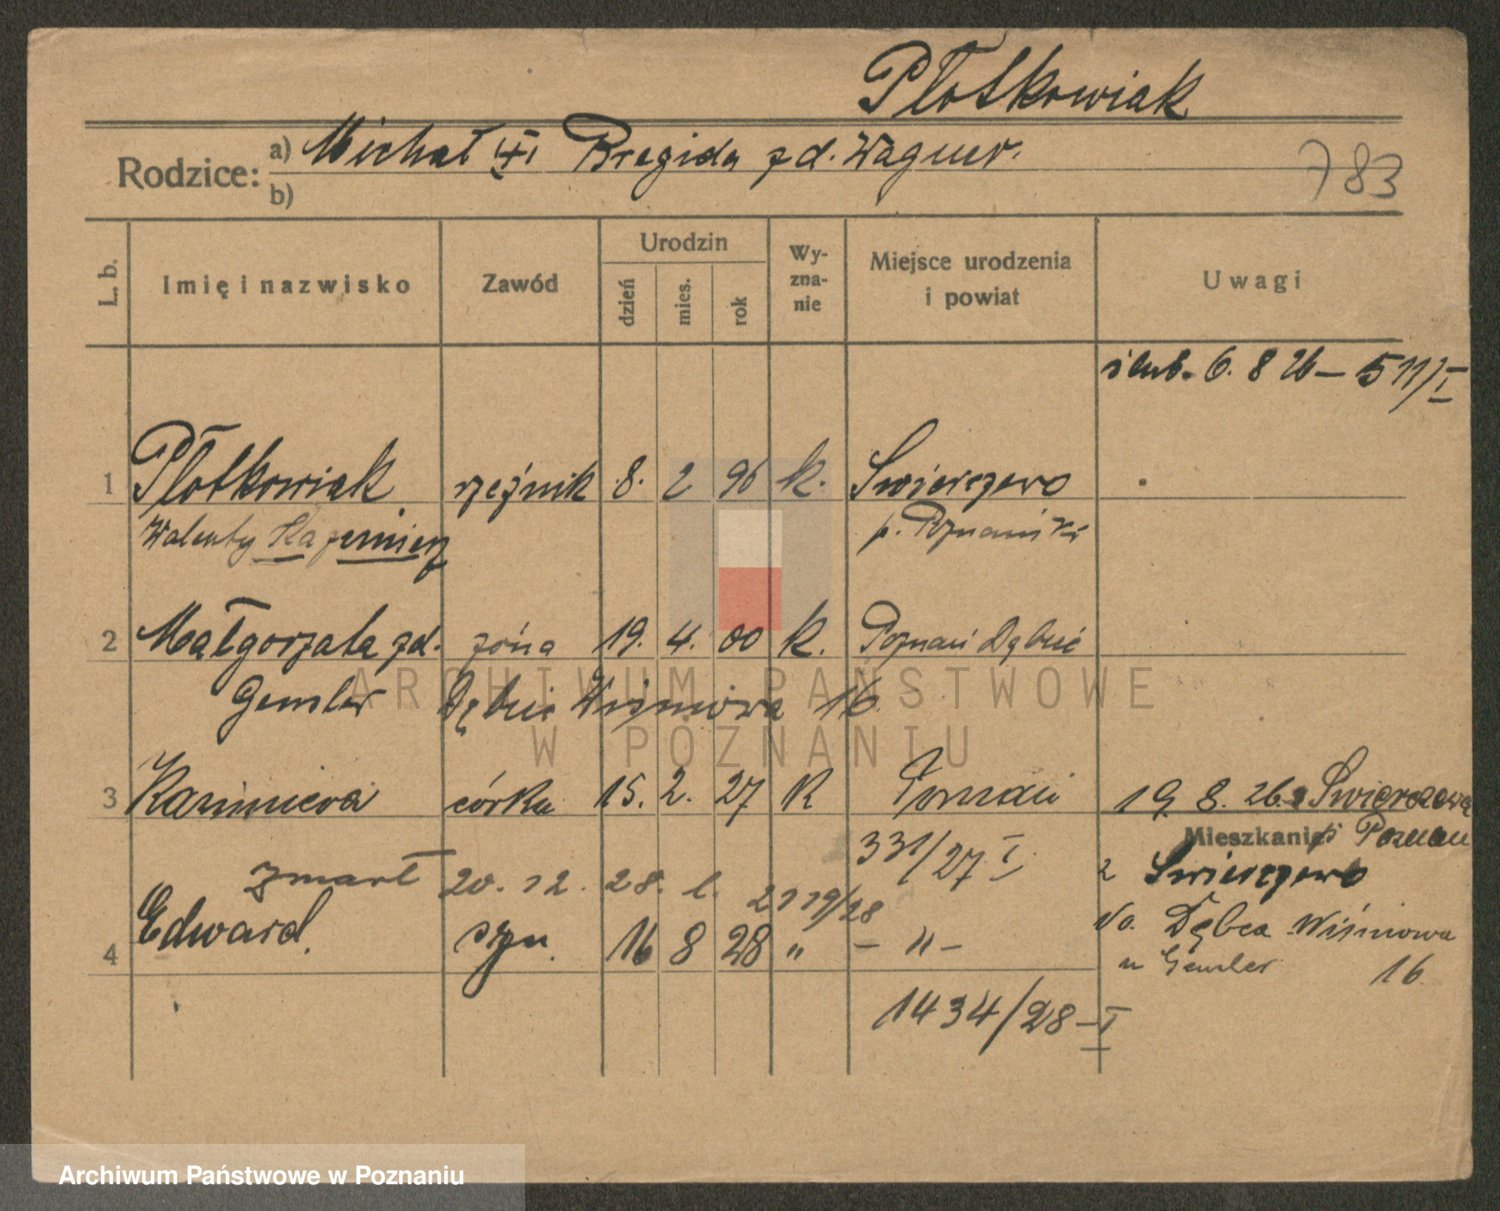 Płotkowiak
Rodzice: a) Michał Bregida zd. Wagner.
b)
783
L. b.
Imię i nazwisko
Zawód
Urodzin
dzień
mies.
rok
Wy-
zna-
nie
Miejsce urodzenia
i powiat
Uwagi
ślub. 6. 8 26 – 511/I
1 Płotkowiak rzeźnik 8. 2 96 k. Swierczewo
Walenty Kazimierz p. Poznański
2 Małgorzata zd. żona 19. 4. 00 k. Poznań Dębiec
Gensler Dębiec Wiśniowa 16
ARCHIWUM PAŃSTWOWE
W POZNANIU
3 Kazimiera córka 15. 2. 27 k Poznań 19. 8. 26. Swierczewo
Mieszkanie Poznań
331/27 I
z Swierczewo
zmarł 20. 12. 28. l. 2119/28
Do. Dębca Wiśniowa
4 Edward. syn. 16 8 28 " – " –
u Gensler 16
1434/28 – I
Archiwum Państwowe w Poznaniu